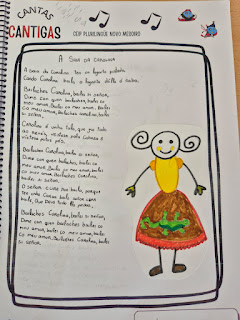 CANTAS
CANTIGAS
CEIP PLURILINGÜE NOVO MESOIRO
A SAIA DA CAROLINA
A saia da Carolina ten un lagarto pintado
Cando Carolina baila o lagarto dálle ó rabo.
Bailaches Carolina, bailei si señor,
Dime con quen bailaches, bailei co
meu amor. Bailei co meu amor, bailei
co meu amor, Bailaches Carolina, bailei
si señor.
Carolina é unha tola, que
ao revés, vístese pola cabeza e
pés.
Bailaches Carolina, bailei si señor,
Dime con quen bailaches, bailei co
meu amor. Bailei co meu amor, bailei
co meu amor. Bailaches Carolina,
bailei si señor.
O señor cura non baila, porque
ten unha coroa, baile señor cura
baile, que Deus todo llo perdoa.
Bailaches Carolina, bailei si señor,
Dime con quen bailaches bailei co
meu amor, bailei co meu amor, bailei
co meu amor. Bailaches Carolina, bailei
si señor.